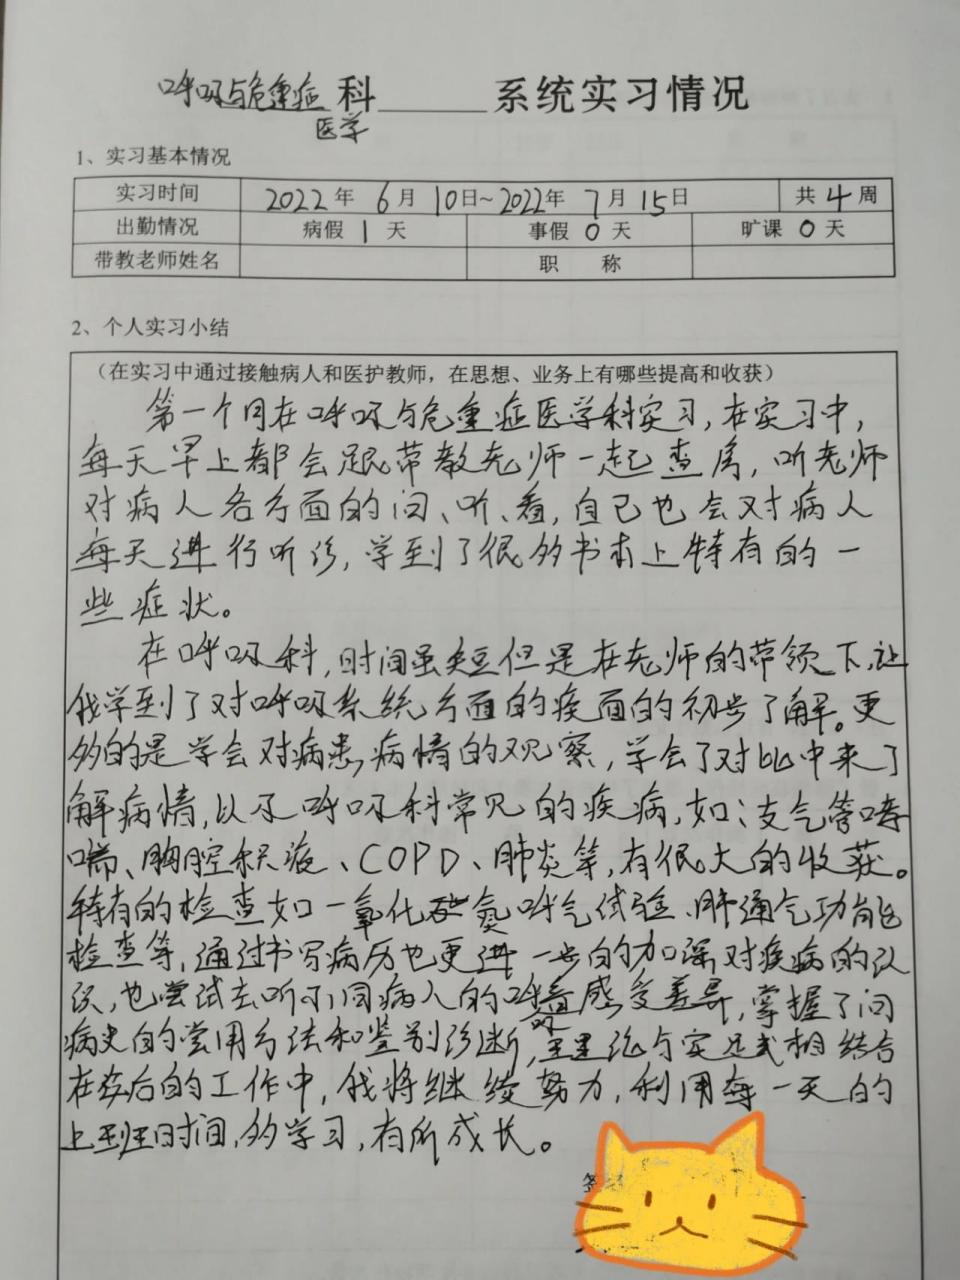 呼吸与危重症医学科______系统实习情况
1、实习基本情况
实习时间 2022年 6月 10日~2022年 7月 15日 共 4 周
出勤情况 病假 1 天 事假 0 天 旷课 0 天
带教老师姓名 职 称
2、个人实习小结
（在实习中通过接触病人和医护教师，在思想、业务上有哪些提高和收获）
第一个月在呼吸与危重症医学科实习，在实习中，
每天早上都会跟带教老师一起查房，听老师
对病人各方面的问、听、看，自己也会对病人
每天进行听诊，学到了很多书本上特有的一
些症状。
在呼吸科，时间虽短但是在老师的带领下，让
我学到了对呼吸系统方面的疾面的初步了解。更
多的是学会对病患病情的观察，学会了对比中来了
解病情，以及呼吸科常见的疾病，如：支气管哮
喘、胸腔积液、COPD、肺炎等，有很大的收获。
特有的检查如一氧化碳氮呼气试验、肺通气功能
检查等，通过书写病历也更进一步的加深对疾病的认
识，也尝试去听不同病人的呼吸音感受差异，掌握了问
病史的常用方法和鉴别诊断，理论与实足式相结合
在今后的工作中，我将继续努力，利用每一天的
上班时间，多学习，有所成长。